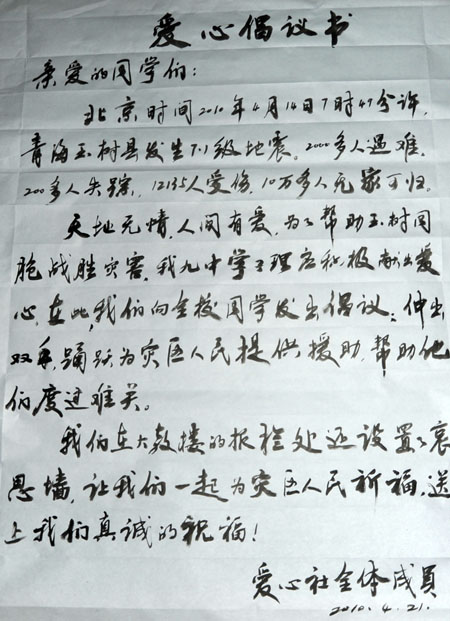 爱心倡议书
亲爱的同学们：
北京时间2010年4月14日7时49分许，
青海玉树县发生7.1级地震。2000多人遇难，
200多人失踪，12135人受伤，10万多人无家可归。
天地无情，人间有爱，为了帮助玉树同
胞战胜灾害，我九中学子理应积极献出爱
心，在此，我们向全校同学发出倡议：伸出
双手，踊跃为灾区人民提供援助，帮助他
们度过难关。
我们在大教楼的报栏处还设置了哀
思墙，让我们一起为灾区人民祈福，送
上我们真诚的祝福！
爱心社全体成员
2010.4.21.